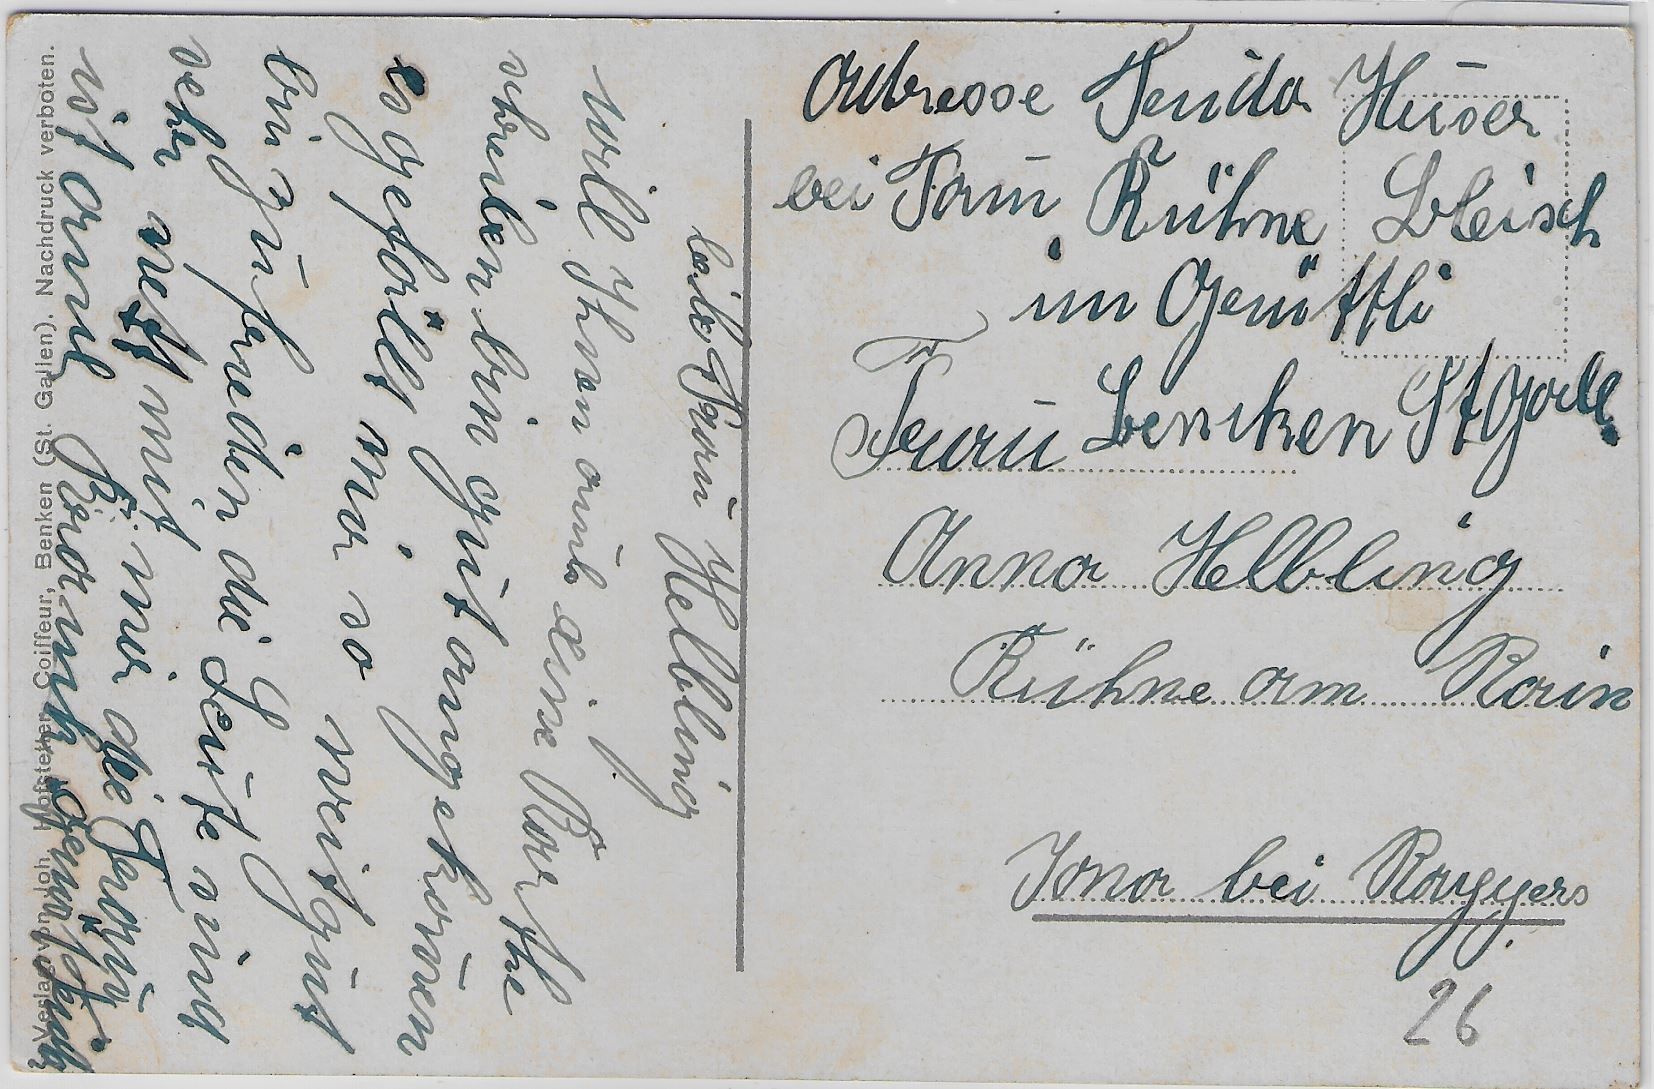 liebe Frau Helbling
will Ihnen auch eine Kar the
schreiben bin gut angekomen
es gefällt mir so weit gut
bin zufrieden die Leute sind
sehr nett mit mir die Frau
ist arme Krank
Adresse Huser
bei Frau Kühne Bleisch
im
Frau Bencken St Gall.
Anna Helbling
Kühne am Rain
Jona bei Rappers
26
Verlag von Joh. Hofstetter, Coiffeur, Benken (St. Gallen). Nachdruck verboten.